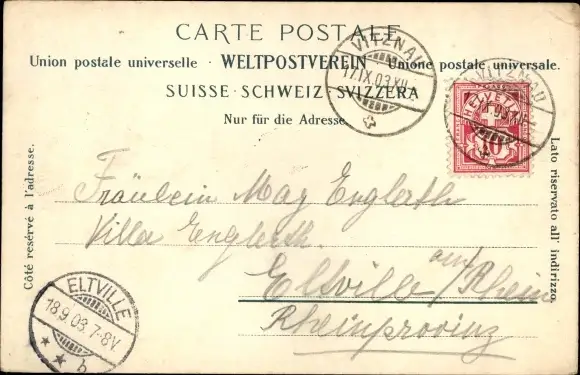 CARTE POSTALE
Union postale universelle · WELTPOSTVEREIN · Unione postale universale.
SUISSE · SCHWEIZ · SVIZZERA
Nur für die Adresse.
Côté resérvé à l'adresse.
Lato riservato all' indirizzo.
VITZNAU
17.IX.03.XII
VITZNAU
17.IX.03.XII
HELVETIA
10
Fräulein May Englerth
Villa Englerth.
Eltville am/Rhein
Rheinprovinz
ELTVILLE
18.9.03.7-8V.
* * b